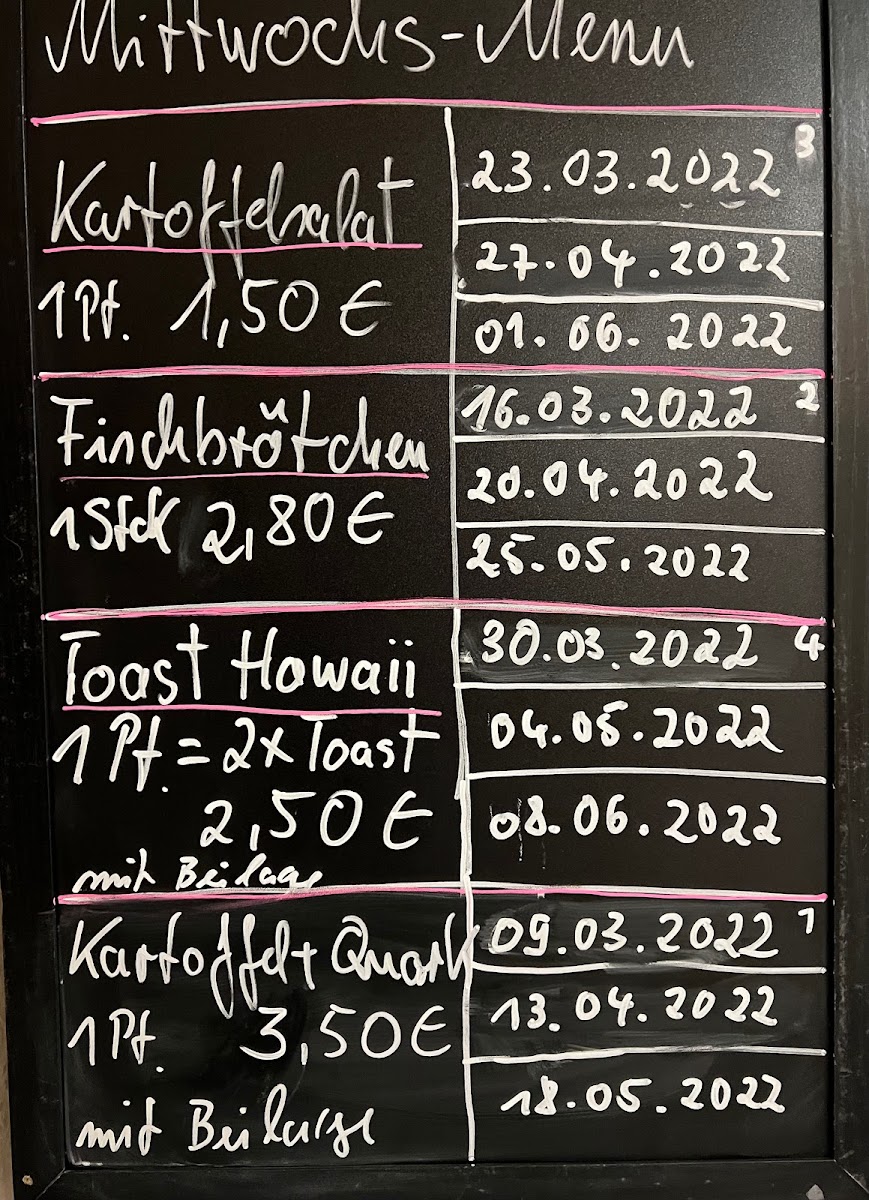 Mittwochs-Menü
Kartoffelsalat
1 Pf. 1,50 €
23.03.2022 3
27.04.2022
01.06.2022
Fischbrötchen
1 Stck 2,80 €
16.03.2022 2
20.04.2022
25.05.2022
Toast Hawaii
1 Pf. = 2x Toast
2,50 €
mit Beilage
30.03.2022 4
04.05.2022
08.06.2022
Kartoffel + Quark
1 Pf. 3,50 €
mit Beilage
09.03.2022 1
13.04.2022
18.05.2022